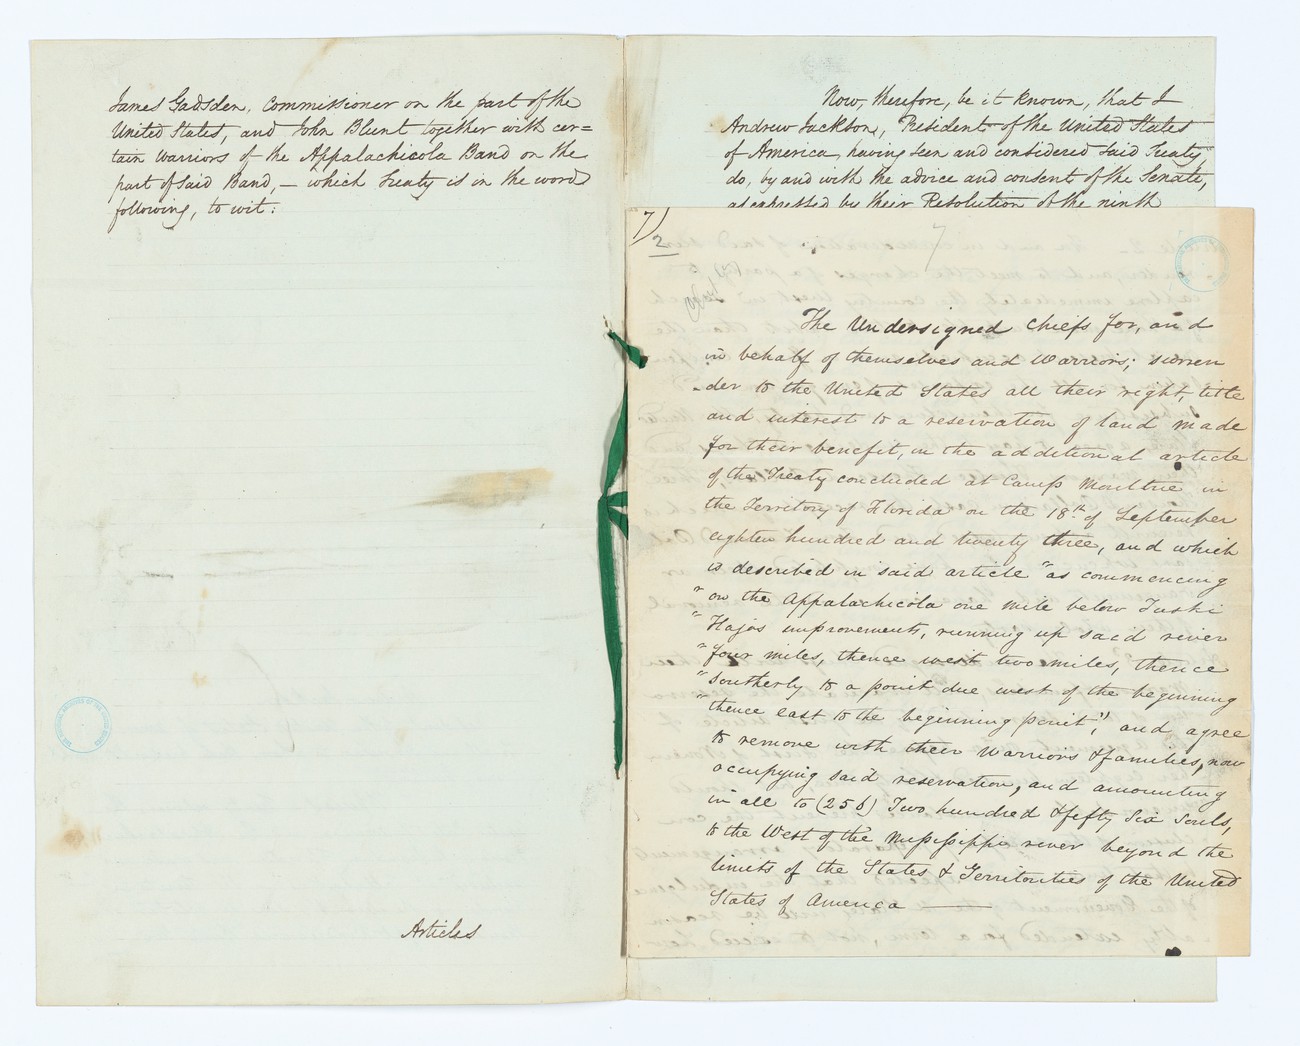 James Gadsden, Commissioner on the part of the
United States, and John Blunt together with cer=
tain Warriors of the Appalachicola Band on the
part of said Band, — which Treaty is in the words
following, to wit:
Articles
Now, therefore, be it known, that I
Andrew Jackson, President of the United States
of America, having seen and considered said Treaty
do, by and with the advice and consent of the Senate,
as expressed by their Resolution of the ninth
7)
2
7
The Undersigned chiefs for, and
in behalf of themselves and Warriors; surren
-der to the United States all their right, title
and interest to a reservation of land made
for their benefit, in the additional article
of the Treaty concluded at Camp Moultrie in
the Territory of Florida on the 18th of September
eighteen hundred and twenty three, and which
is described in said article "as commencing
"on the Appalachicola one mile below Tuski
"Hajos improvements, running up said river
"four miles, thence west two miles, thence
"southerly to a point due west of the beginning
"thence east to the beginning point", and agree
to remove with their Warriors & families, now
occupying said reservation, and amounting
in all to (256) Two hundred & fifty six souls,
to the West of the Mississippi river beyond the
limits of the States & Territorities of the United
States of America —